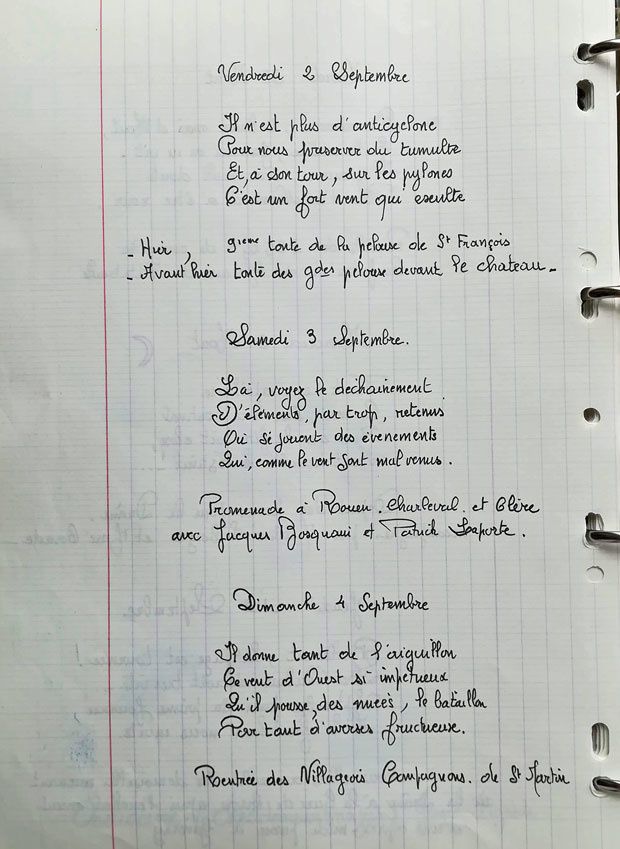 Vendredi 2 Septembre
Il n'est plus d'anticyclone
Pour nous preserver du tumulte
Et, à son tour, sur les pylones
C'est un fort vent qui exulte
- Hier, 9ieme tonte de la pelouse de St François
- Avant hier tonte des gdes pelouse devant le chateau -
Samedi 3 Septembre.
Là, voyez le dechainement
D'élements, par trop, retenus
Où se jouent des évenements
Qui, comme le vent sont mal venus.
Promenade à Rouen. Charleval. et Clère
avec Jacques et Patrick Laporte.
Dimanche 4 Septembre
Il donne tant de l'aiguillon
Ce vent d'Ouest si impetueux
Qu'il pousse, des nuées, le bataillon
Pour tant d'averses fructueuse.
Rentrée des Villageois Compagnons. de St Martin